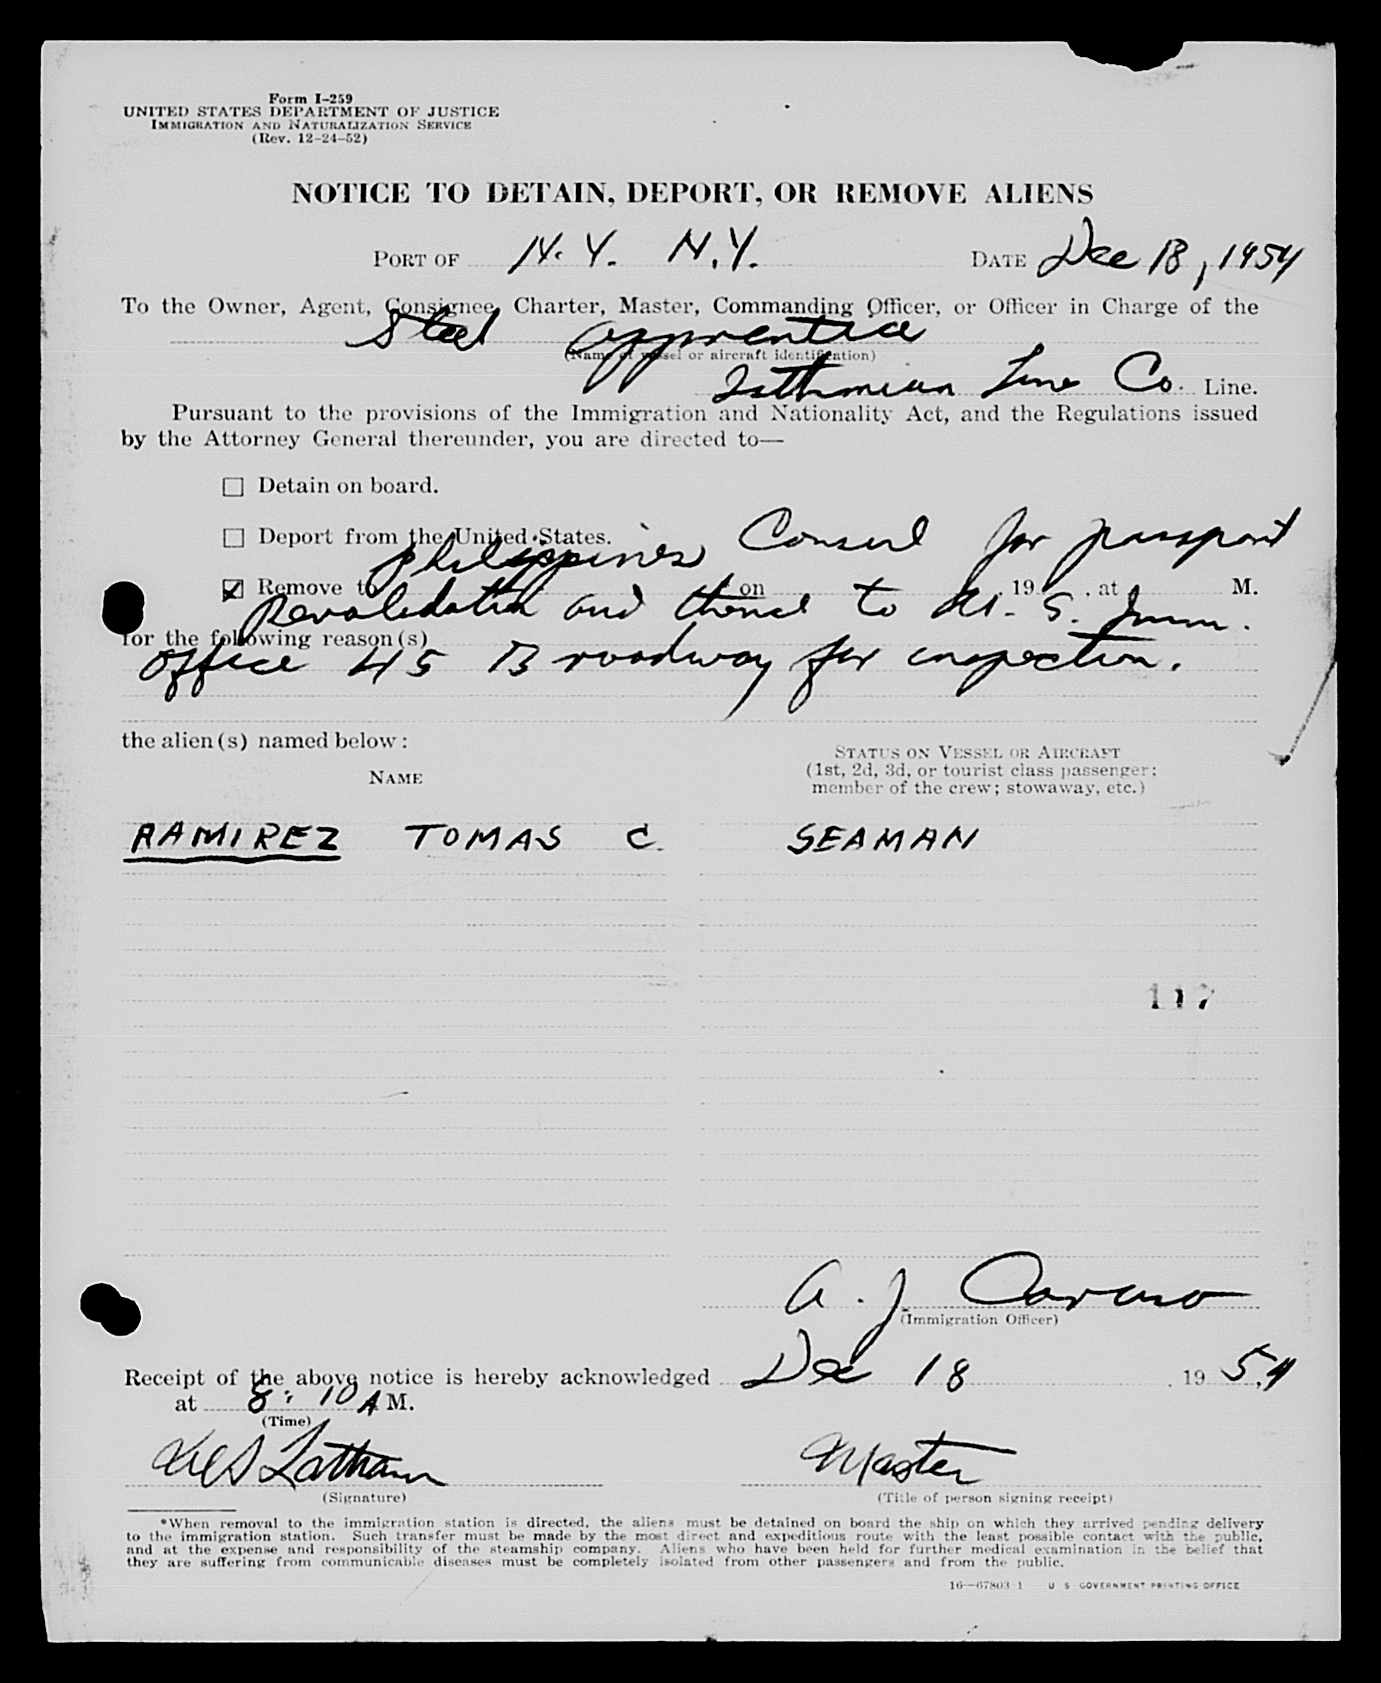 Form I-259
UNITED STATES DEPARTMENT OF JUSTICE
IMMIGRATION AND NATURALIZATION SERVICE
(Rev. 12-24-52)
NOTICE TO DETAIN, DEPORT, OR REMOVE ALIENS
PORT OF N.Y. N.Y. DATE Dec 18, 1954
To the Owner, Agent, Consignee, Charter, Master, Commanding Officer, or Officer in Charge of the
Steel Apprentice
(Name of vessel or aircraft identification)
Isthmian Line Co. Line.
Pursuant to the provisions of the Immigration and Nationality Act, and the Regulations issued
by the Attorney General thereunder, you are directed to—
☐ Detain on board.
☐ Deport from the United States.
Philippines Consul for passport
☑ Remove to on 19 , at M.
Revalidation and thence to U.S. Imm.
for the following reason(s)
office 45 Broadway for inspection.
the alien(s) named below:
NAME
STATUS ON VESSEL OR AIRCRAFT
(1st, 2d, 3d, or tourist class passenger;
member of the crew; stowaway, etc.)
RAMIREZ TOMAS C. SEAMAN
117
A. J. Caruso
(Immigration Officer)
Receipt of the above notice is hereby acknowledged Dec 18 1954
at 8:10 A M.
(Time)
Latham Master
(Signature) (Title of person signing receipt)
*When removal to the immigration station is directed, the aliens must be detained on board the ship on which they arrived pending delivery
to the immigration station. Such transfer must be made by the most direct and expeditious route with the least possible contact with the public,
and at the expense and responsibility of the steamship company. Aliens who have been held for further medical examination in the belief that
they are suffering from communicable diseases must be completely isolated from other passengers and from the public.
16—67803-1 U S GOVERNMENT PRINTING OFFICE